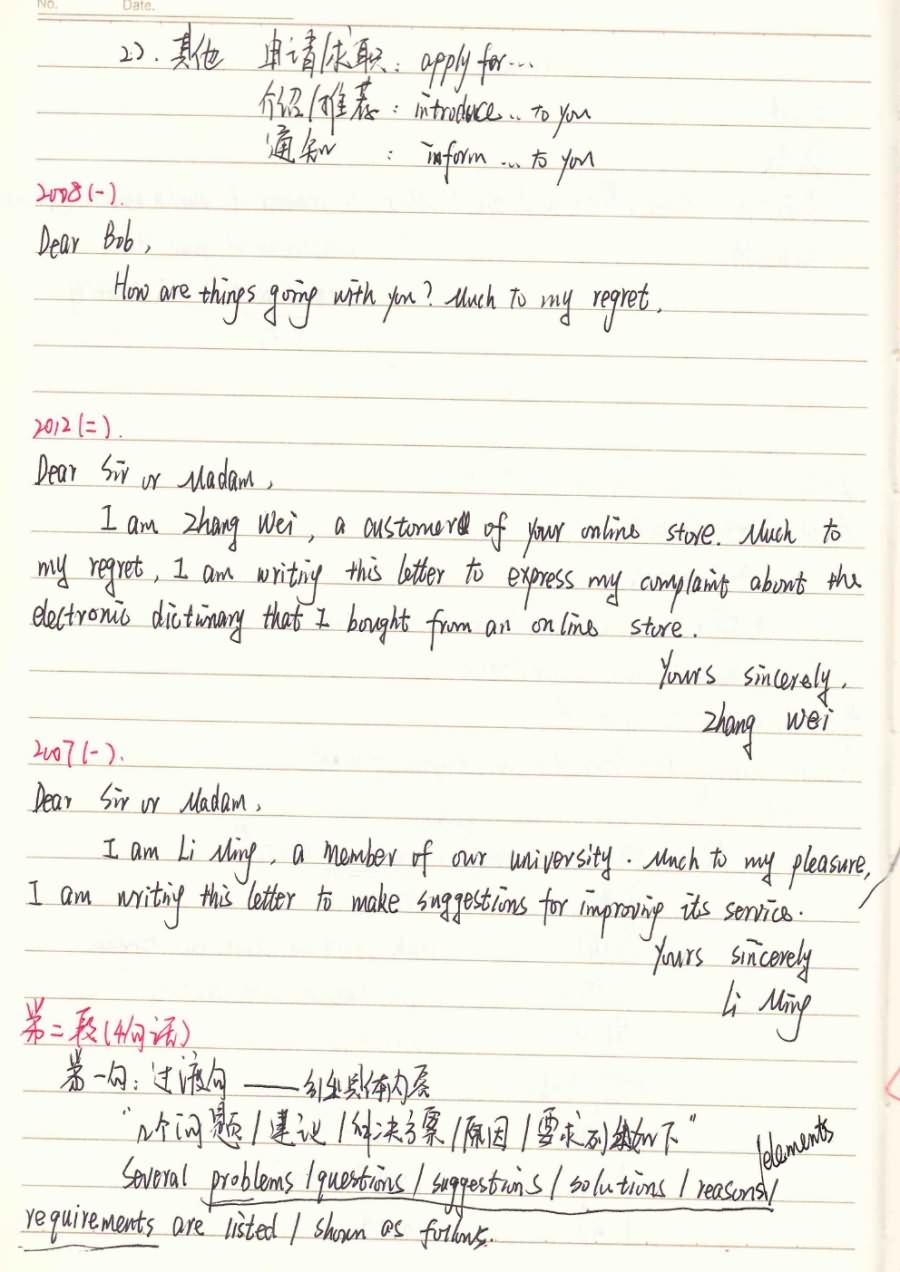 No. Date.
2). 其他 申请/求职: apply for...
介绍/推荐: introduce... to you
通知 : inform ... to you
2008(一).
Dear Bob,
How are things going with you? Much to my regret,
2012(二).
Dear Sir or Madam,
I am Zhang Wei, a customer of your online store. Much to
my regret, I am writing this letter to express my complaint about the
electronic dictionary that I bought from an online store.
Yours sincerely,
Zhang Wei
2007(一).
Dear Sir or Madam,
I am Li Ming, a member of our university. Much to my pleasure,
I am writing this letter to make suggestions for improving its service.
Yours sincerely
Li Ming
第二段(4句话)
第一句: 过渡句 —— 引出具体内容
"几个问题/建议/解决方案/原因/要求列如下"
/elements
Several problems/questions/suggestions/solutions/reasons/
requirements are listed/shown as follows.